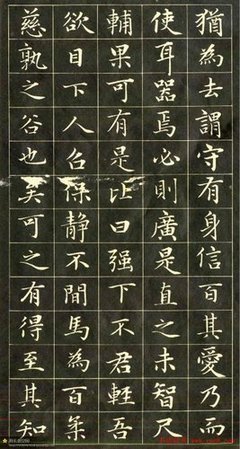 猶為去謂守有身信百其愛乃而
使耳器焉必則廣是直之未智尺
輔果可有是比曰强下不君輕吾
欲目下人台保静不間馬為百柔
慈孰之谷也美可之有得至其知